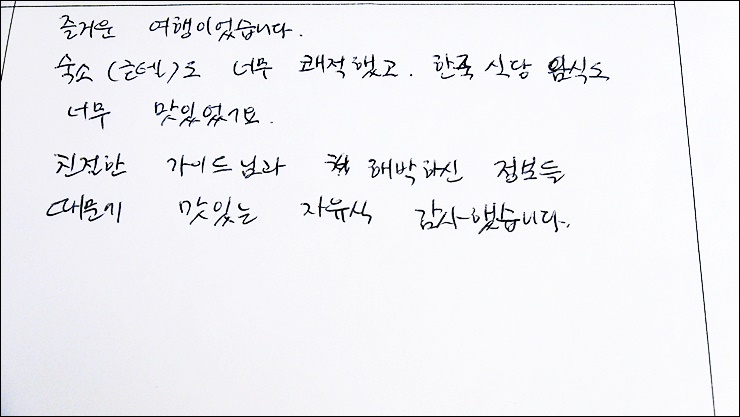 즐거운 여행이었습니다.
숙소(호텔)도 너무 쾌적했고. 한국 식당 음식도
너무 맛있었구요.
친절한 가이드님과 해박하신 정보들
때문에 맛있는 자유식 감사했습니다.